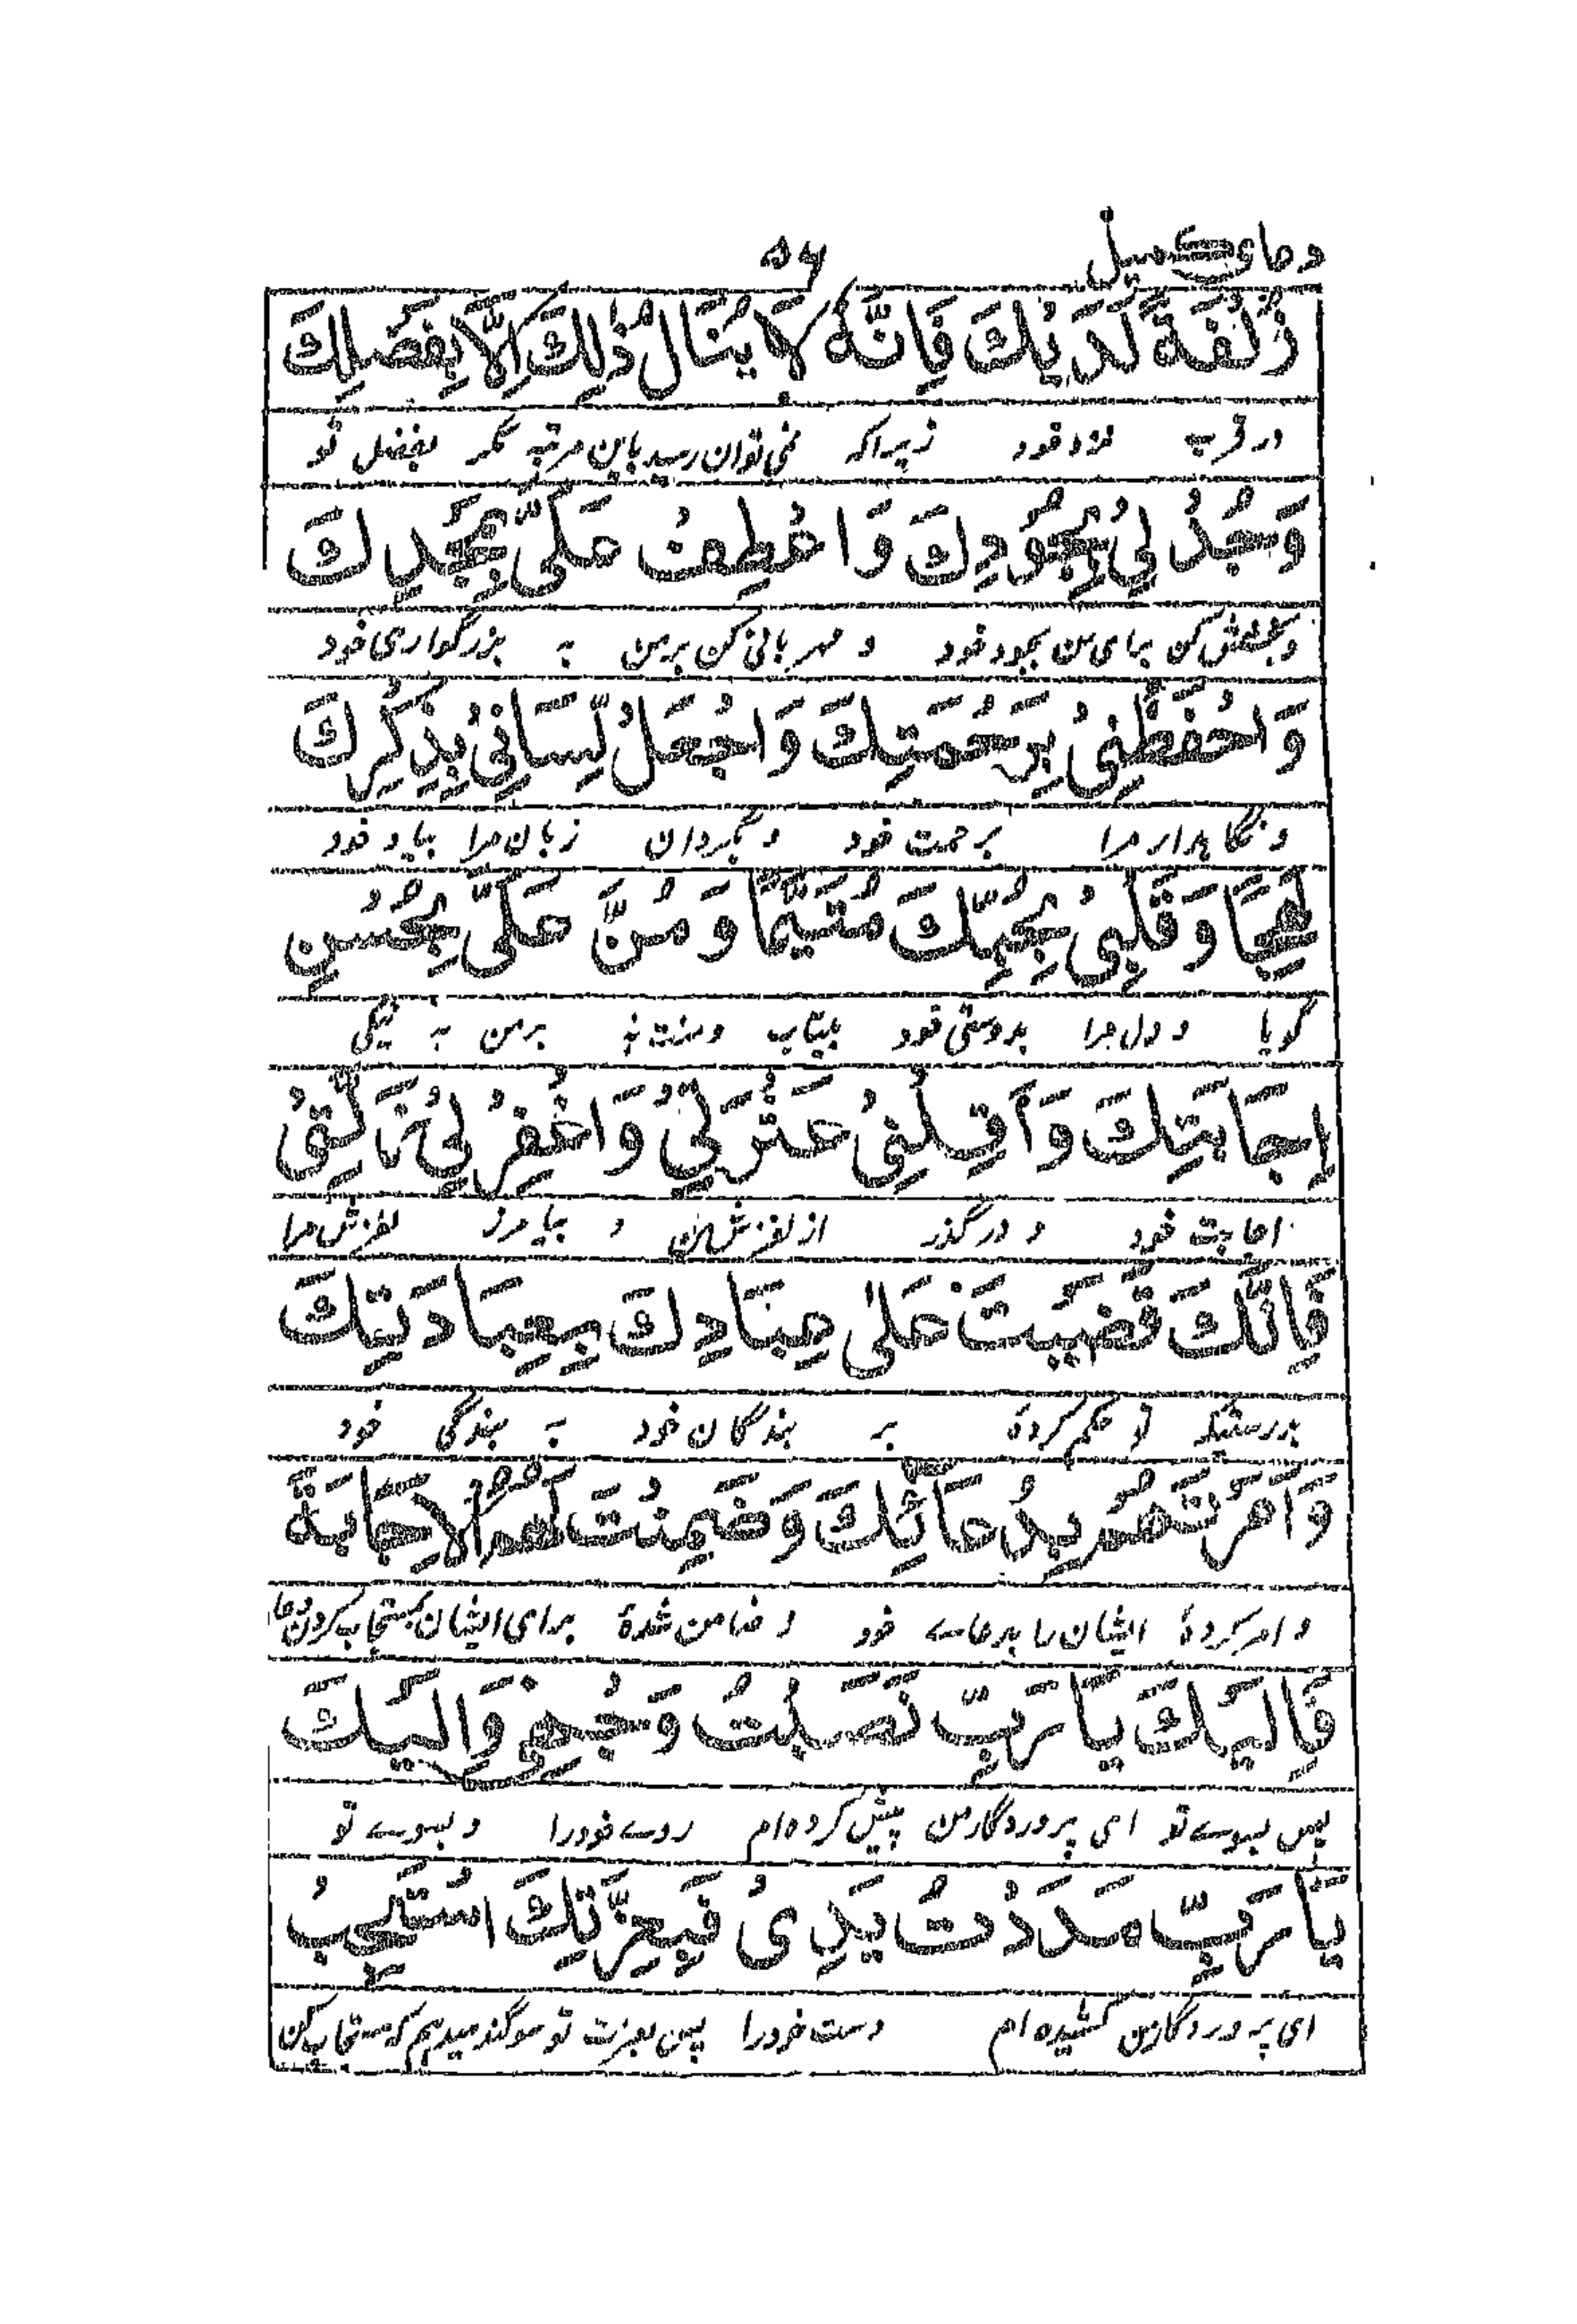 دعاے کمیل
۵۶
زُلْفَةً لَدَيْكَ فَاِنَّهٗ لَا يَنَالُ ذٰلِكَ اِلَّا بِفَضْلِكَ
در قرب نزد خود زیراکه نمی توان رسید باین مرتبه مگر بفضل تو
وَجُدْ لِيْ بِجُوْدِكَ وَاعْطِفْ عَلَيَّ بِمَجْدِكَ
و بخشش کن برای من بجود خود و مهربانی کن بر من به بزرگواری خود
وَاحْفَظْنِيْ بِرَحْمَتِكَ وَاجْعَلْ لِّسَانِيْ بِذِكْرِكَ
و نگاهدار مرا برحمت خود و بگردان زبان مرا بیاد خود
لَهِجًا وَقَلْبِيْ بِحُبِّكَ مُتَيَّمًا وَمُنَّ عَلَيَّ بِحُسْنِ
گویا و دل مرا بدوستی خود بیتاب و منت نه بر من به نیکی
اِجَابَتِكَ وَاَقِلْنِيْ عَثْرَتِيْ وَاغْفِرْ لِيْ زَلَّتِيْ
اجابت خود و درگذر از لغزش من و بیامرز لغزش مرا
فَاِنَّكَ قَضَيْتَ عَلٰى عِبَادِكَ بِعِبَادَتِكَ
بدرستیکه تو حکم کردهٔ بر بندگان خود به بندگی خود
وَاَمَرْتَهُمْ بِدُعَائِكَ وَضَمِنْتَ لَهُمُ الْاِجَابَةَ
و امر کردهٔ ایشان را بدعاے خود و ضامن شدهٔ برای ایشان مستجاب کردن دعا
فَاِلَيْكَ يَا رَبِّ نَصَبْتُ وَجْهِيْ وَاِلَيْكَ
پس بسوے تو ای پروردگار من پیش کرده ام روے خود را و بسوے تو
يَا رَبِّ مَدَدْتُ يَدِيْ فَبِعِزَّتِكَ اسْتَجِبْ
ای پروردگار من کشیده ام دست خود را پس بعزت تو سوگند میدهم که مستجاب کن